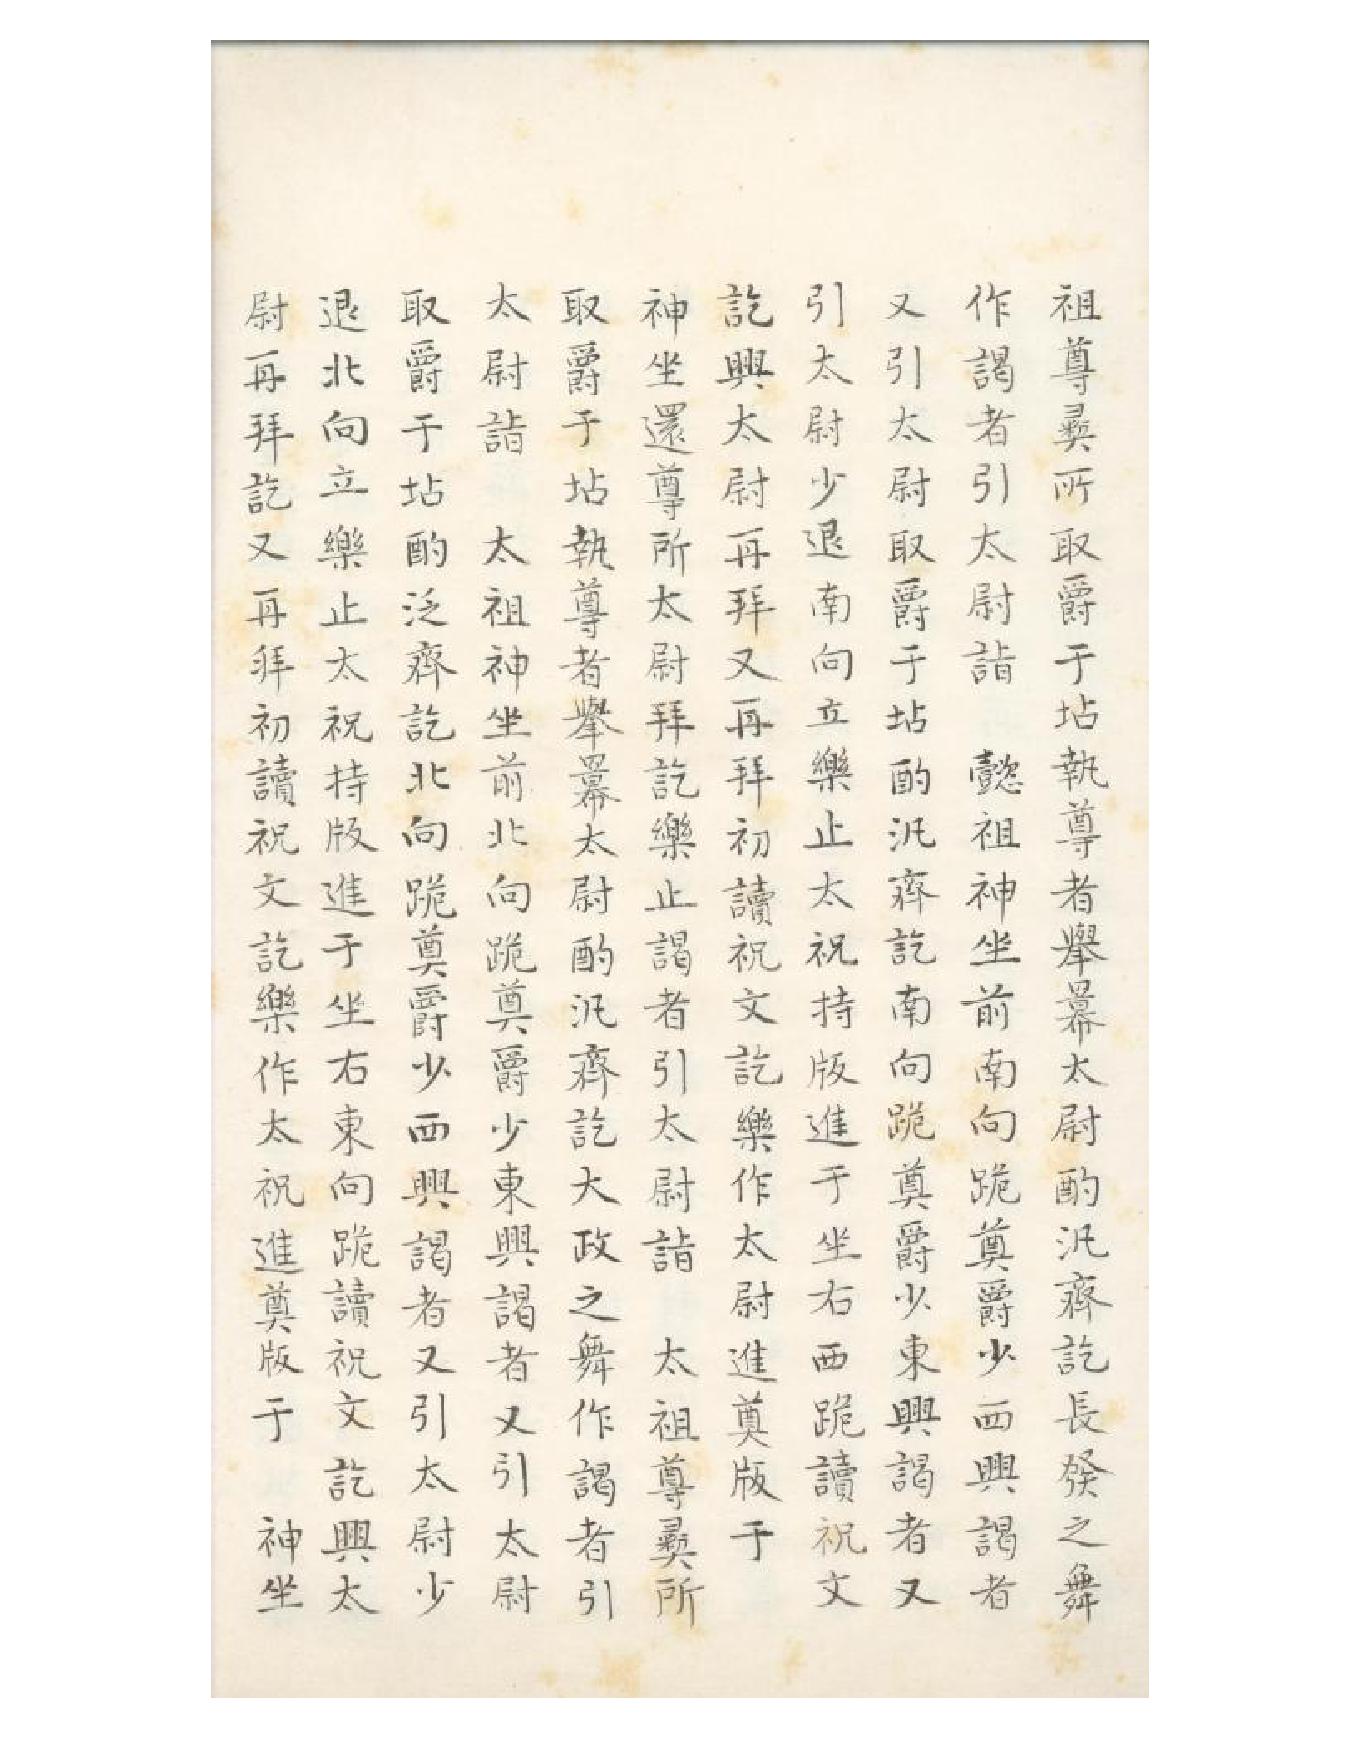 祖尊彞所取爵于坫執尊者舉冪太尉酌汎齊訖長發之舞
作謁者引太尉詣　懿祖神坐前南向跪奠爵少西興謁者
又引太尉取爵于坫酌汎齊訖南向跪奠爵少東興謁者又
引太尉少退南向立樂止太祝持版進于坐右西跪讀祝文
訖興太尉再拜又再拜初讀祝文訖樂作太尉進奠版于
神坐還尊所太尉拜訖樂止謁者引太尉詣　太祖尊彞所
取爵于坫執尊者舉冪太尉酌汎齊訖大政之舞作謁者引
太尉詣　太祖神坐前北向跪奠爵少東興謁者又引太尉
取爵于坫酌泛齊訖北向跪奠爵少西興謁者又引太尉少
退北向立樂止太祝持版進于坐右東向跪讀祝文訖興太
尉再拜訖又再拜初讀祝文訖樂作太祝進奠版于　神坐